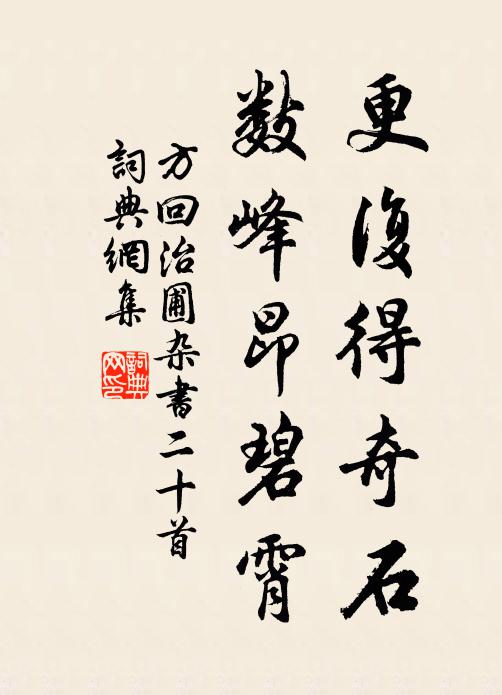 更復得奇石
數峰昂碧霄
方回治圃杂書二十首
詞典網集
詞典网印